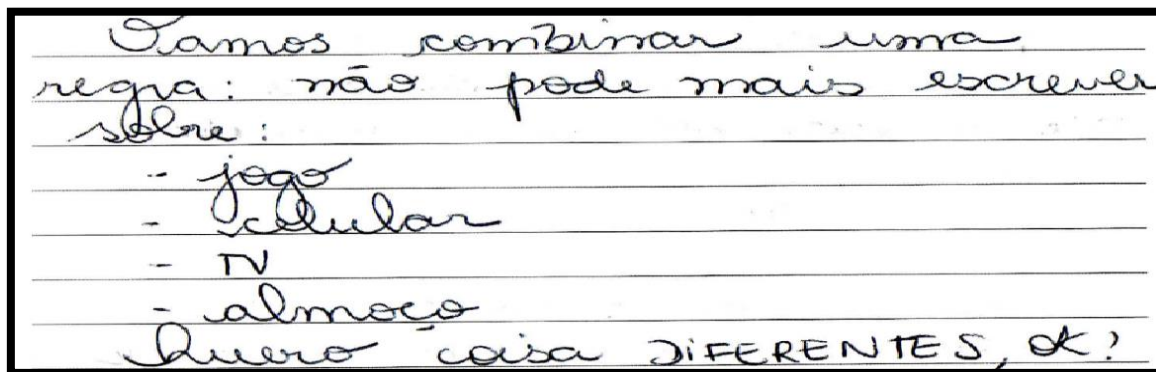 Vamos combinar uma
regra: não pode mais escrever
sobre:
- jogo
- celular
- TV
- almoço
Quero coisa DIFERENTES, ok?